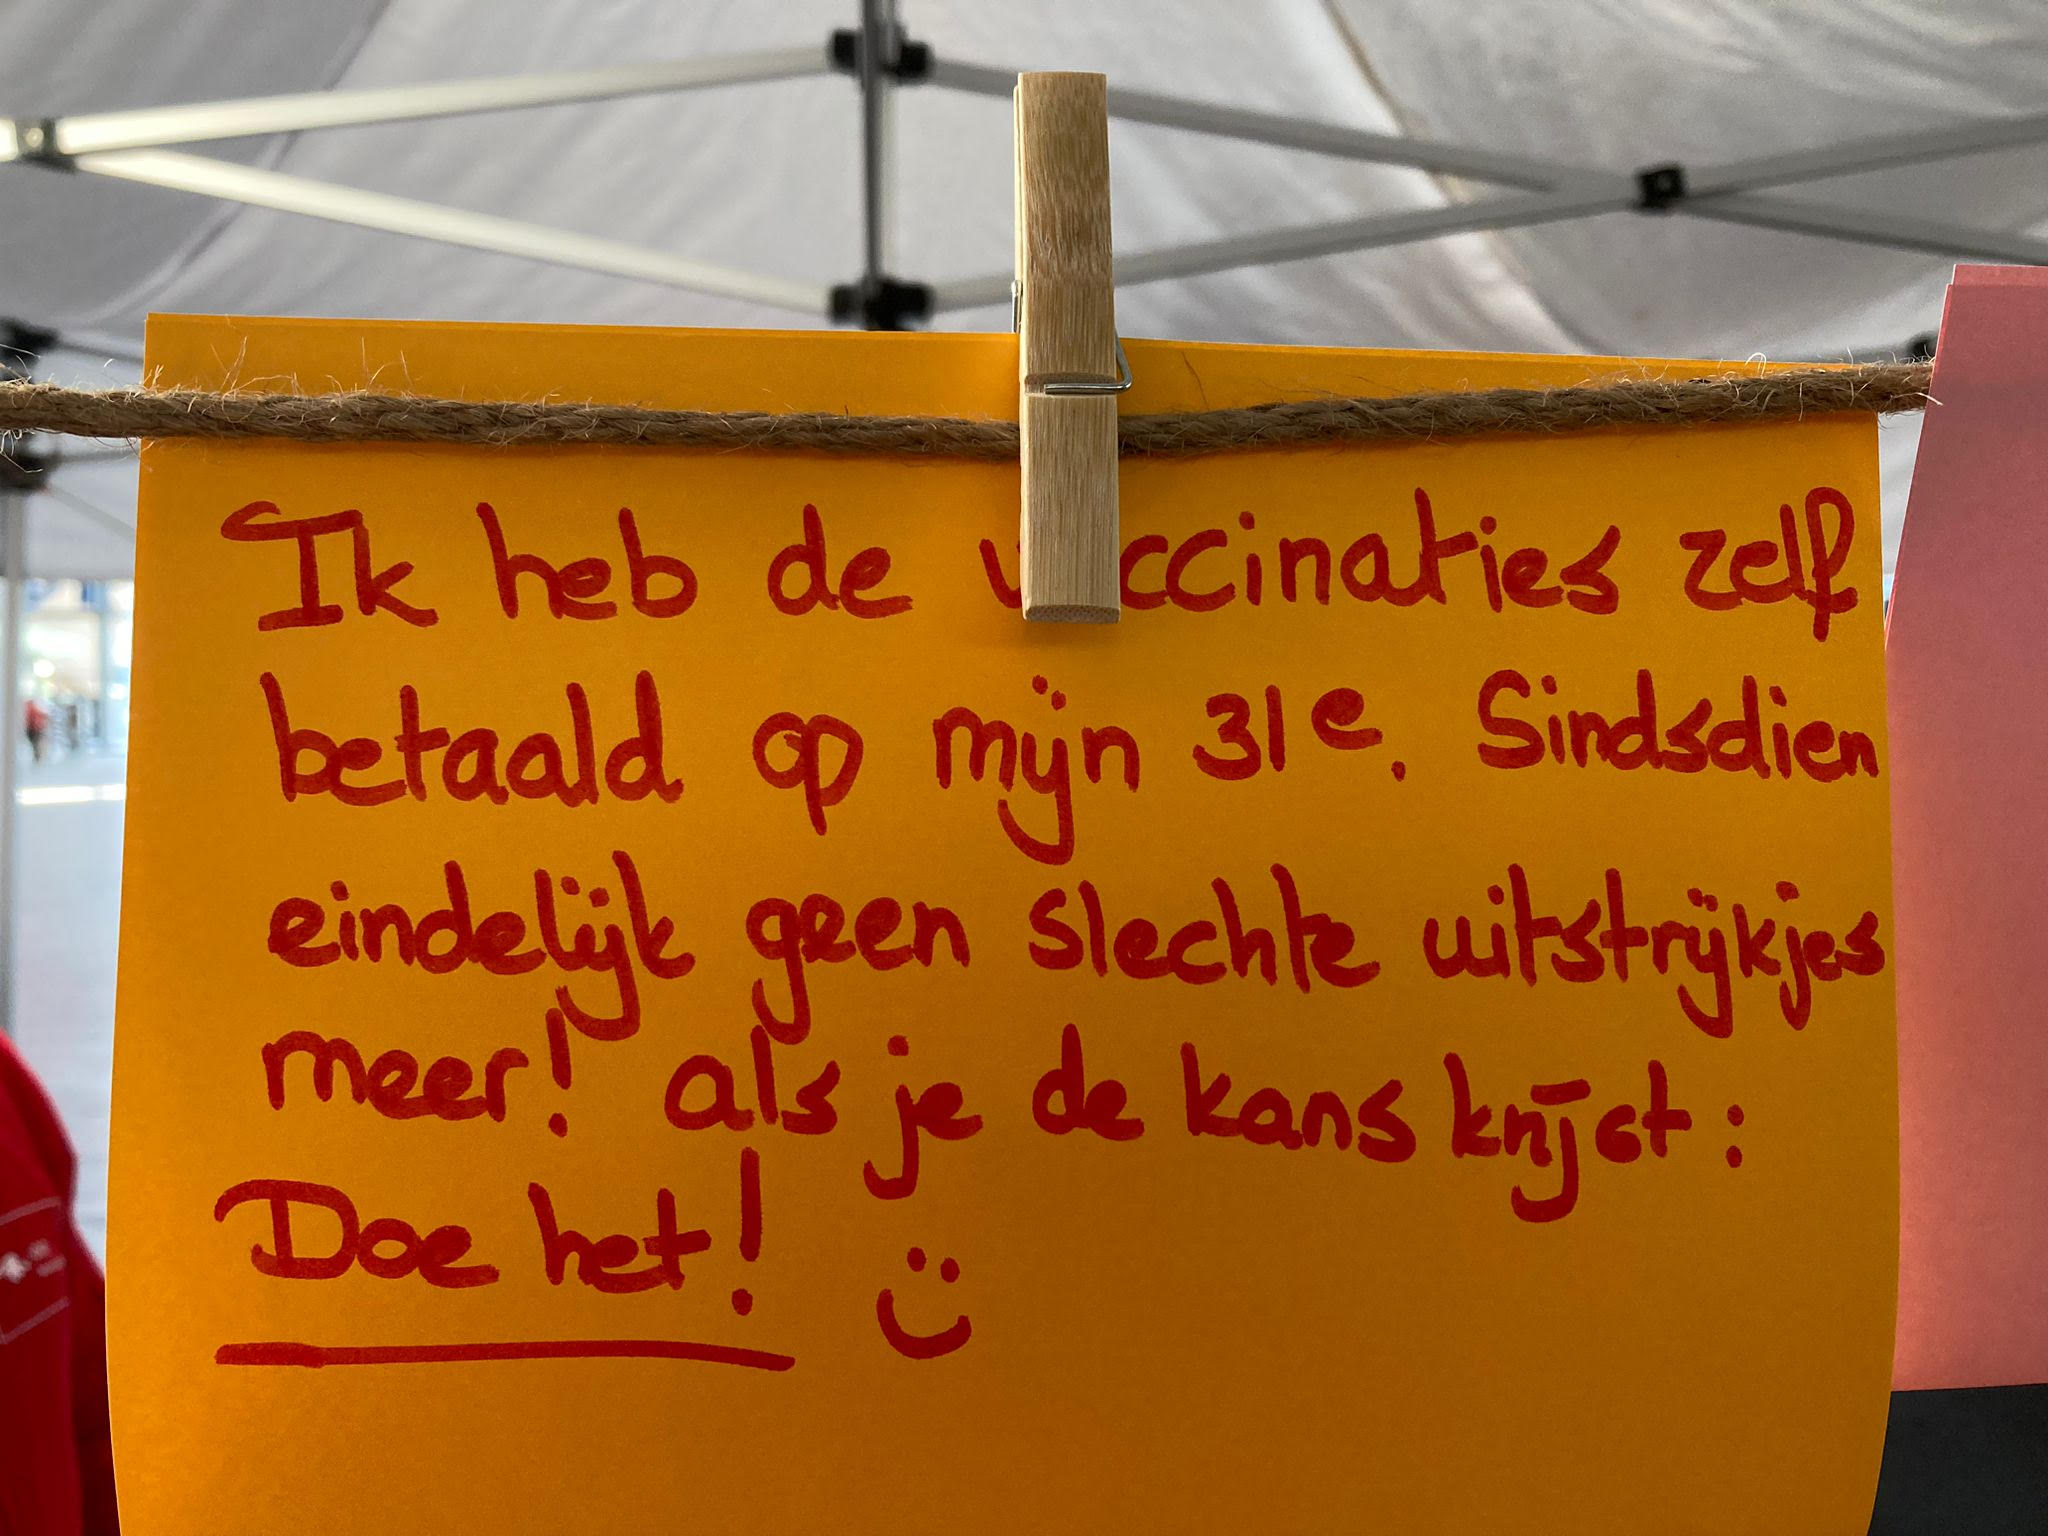 Ik heb de vaccinaties zelf
betaald op mijn 31e. Sindsdien
eindelijk geen slechte uitstrijkjes
meer! als je de kans krijgt:
Doe het! :)